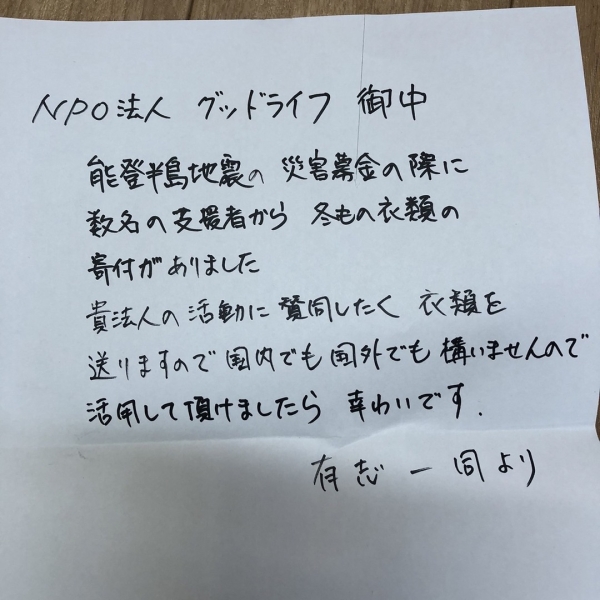 NPO法人 グッドライフ 御中
能登半島地震の 災害募金の際に
数名の支援者から 冬もの衣類の
寄付がありました
貴法人の活動に賛同したく 衣類を
送りますので国内でも国外でも構いませんので
活用して頂けましたら 幸わいです.
有志一同より